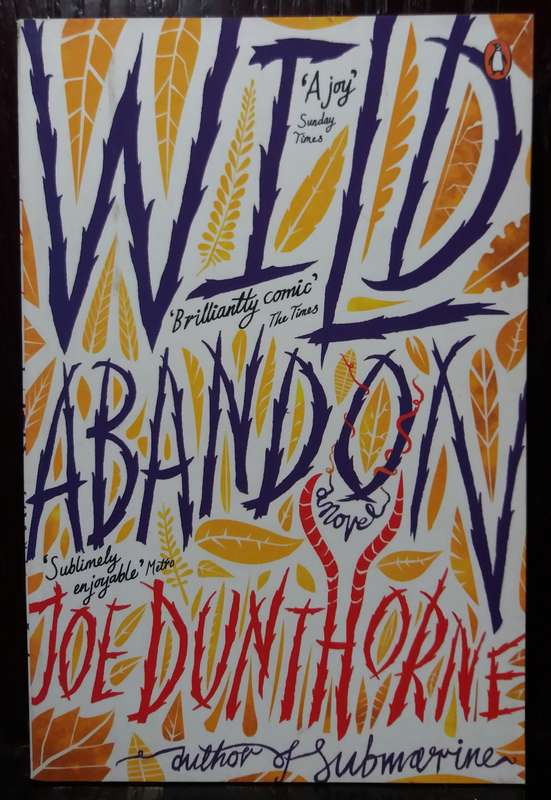 WILD
'A joy'
Sunday
Times
'Brilliantly comic'
The Times
ABANDON
a novel
'Sublimely
enjoyable' Metro
JOE DUNTHORNE
author of Submarine